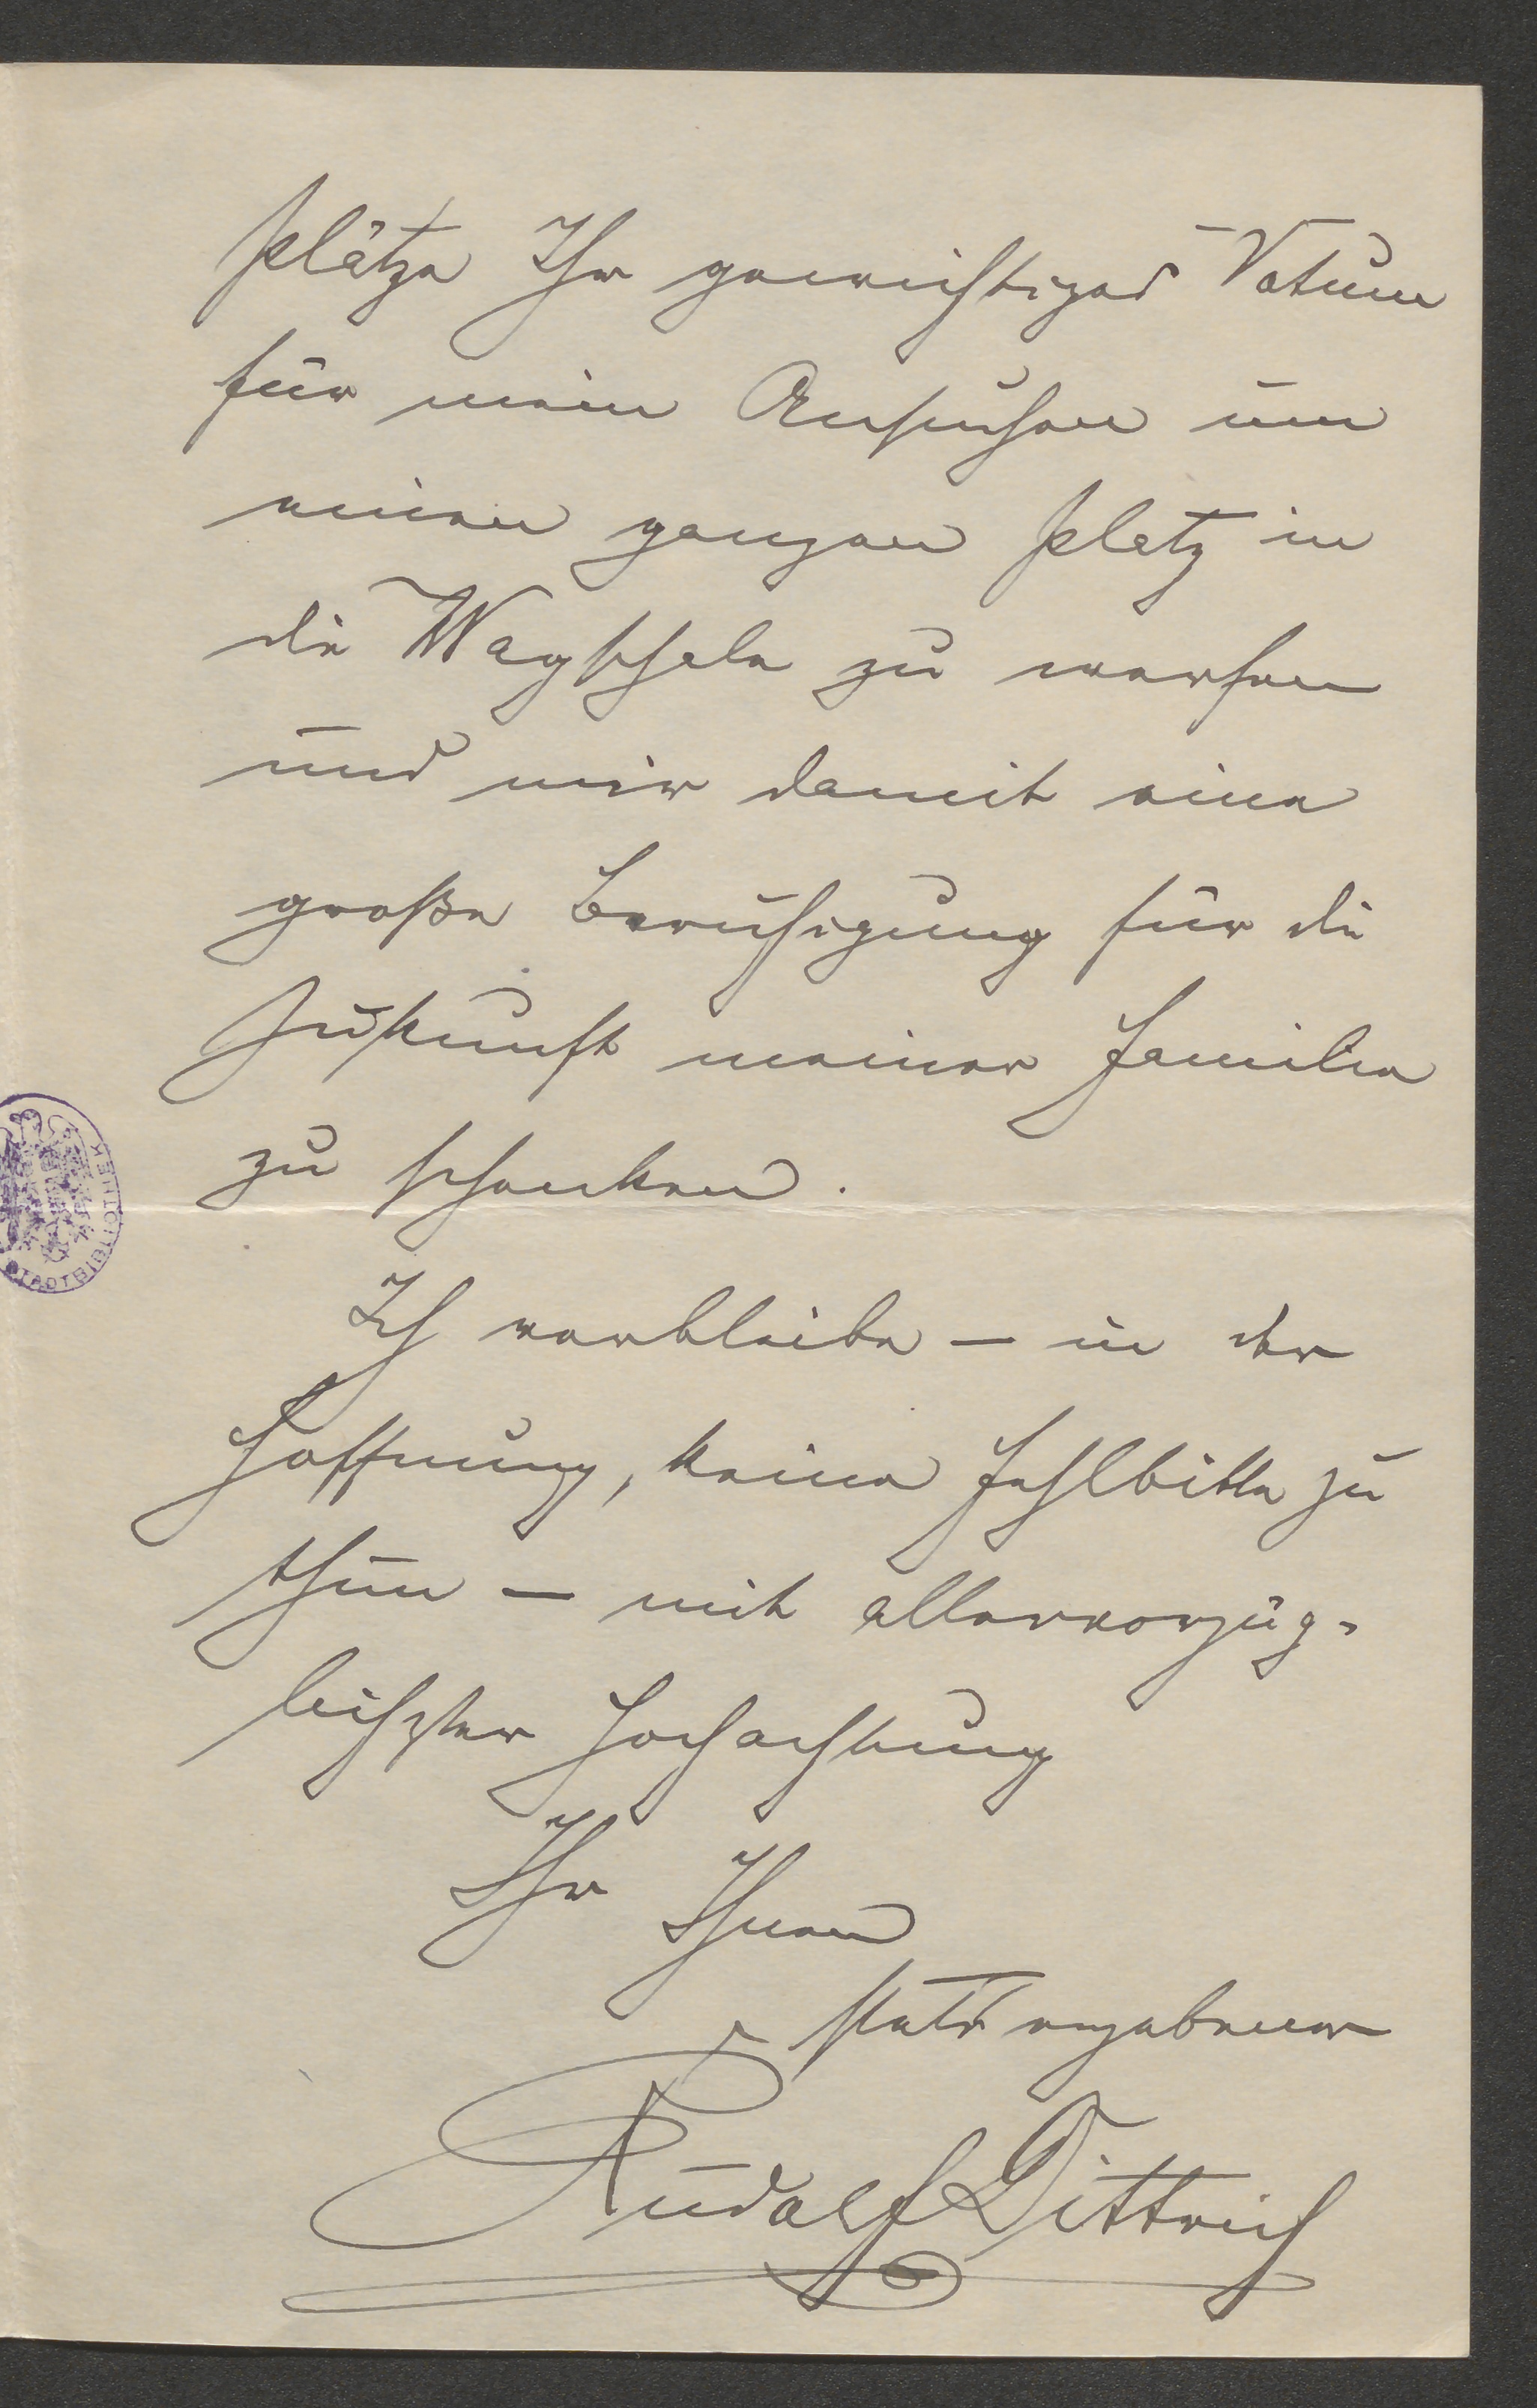 Plätze Ihr gewichtiges Votum
für mein Ansuchen um
einen ganzen Platz in
die Wagschale zu werfen
und mir damit eine
große Beruhigung für die
Zukunft meiner Familie
zu schenken.
Ich verbleibe – in der
Hoffnung, keine Fehlbitte zu
thun – mit allervorzüg-
lichster Hochachtung
Ihr Ihnen
stets ergebener
Rudolf Dittrich
STADTBIBLIOTHEK